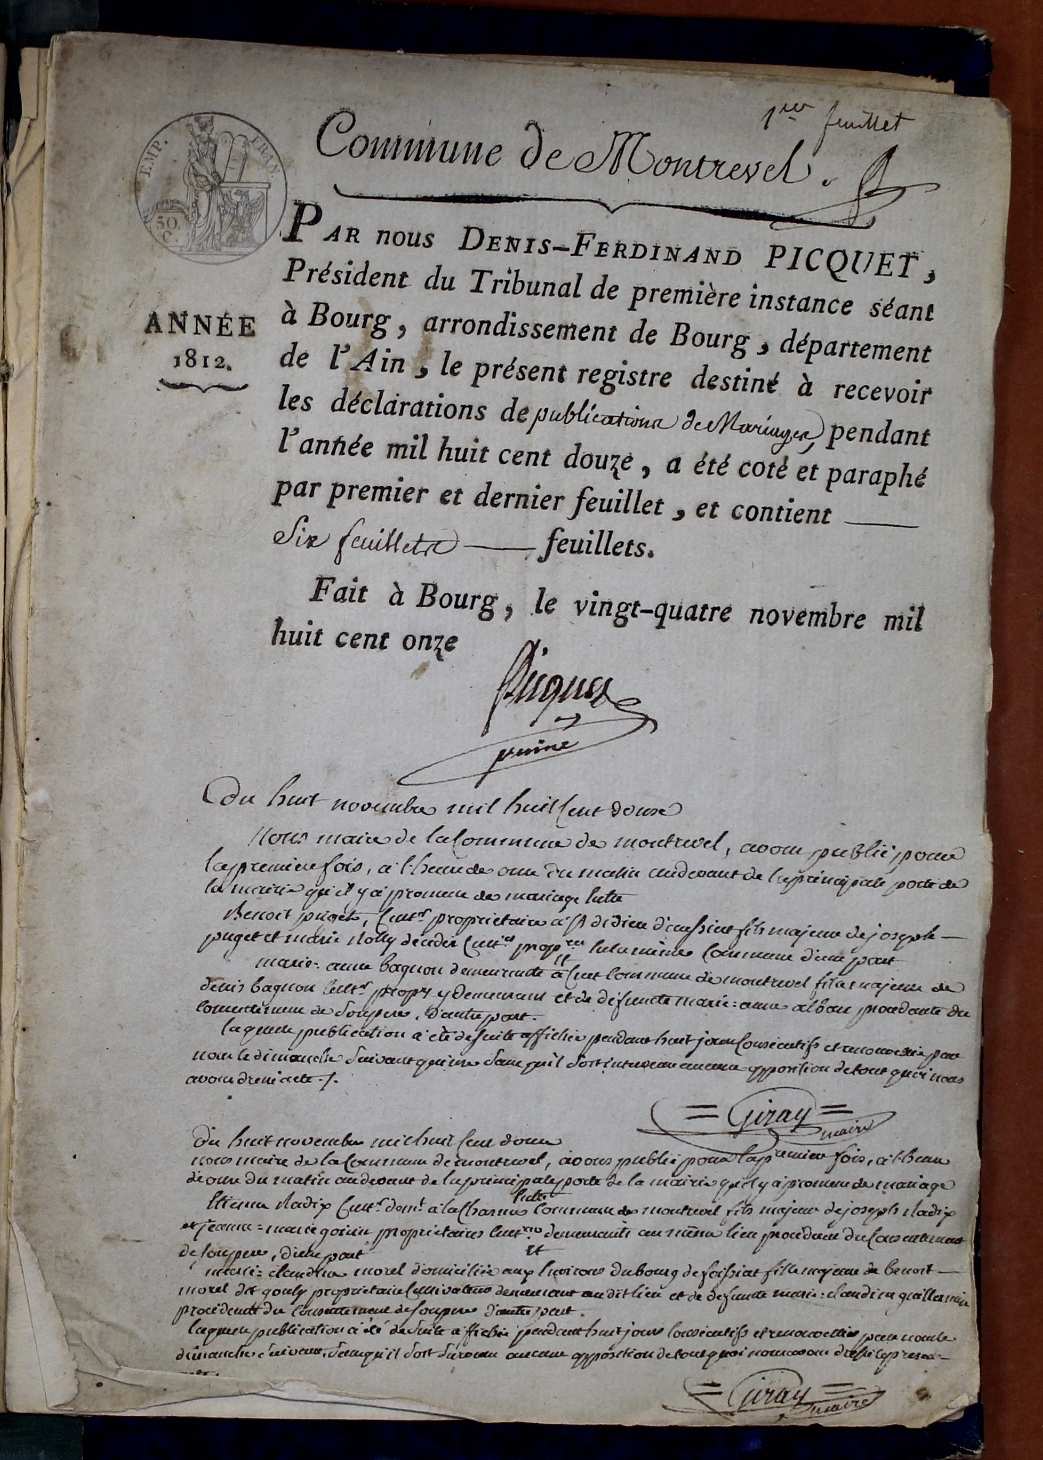 1er feuillet
EMP. FRAN.
50 C.
Commune de Montrevel.
PAR nous DENIS-FERDINAND PICQUET,
Président du Tribunal de première instance séant
ANNÉE
1812.
à Bourg, arrondissement de Bourg, département
de l'Ain, le présent registre destiné à recevoir
les déclarations de publications de Mariages, pendant
l'année mil huit cent douze, a été coté et paraphé
par premier et dernier feuillet, et contient
Six feuillets feuillets.
Fait à Bourg, le vingt-quatre novembre mil
huit cent onze
Picquet
Du huit novembre mil huit Cent douse
Nous maire de la Commune de montrevel, avons publié pour
la premiere fois, a l'heure de onse du matin audevant de la principale porte de
la mairie qu'il y a promesse de mariage Entre
Benoit puget, Cultr proprietaire a St didier d'aussiat fils majeur de joseph
puget et marie decedés Cultrs propres Commune d'une part
Et
marie-anne bagnon demeurante a Cuet Commune de montrevel fille majeure de
denis bagnon Cultr propre y demeurant et de defunte marie-anne alban procedante du
Consentement de Son pere, d'autre part.
laquelle publication a été de suite affichée pendant huit jours Consécutifs et renouvellée par
nous le dimanche Suivant Sans qu'il Soit intervenu aucune opposition de tout quoi nous
avons dressé acte
Giray
maire
Du huit novembre mil huit Cent douse
nous maire de la Commune de montrevel, avons publié pour la premiere fois, a l'heure
de onse du matin audevant de la principale porte de la mairie qu'il y a promesse de mariage
Entre
Etienne Cultr demt a la Charme Commune de montrevel fils majeur de joseph
et jeanne-marie proprietaires Cultres demeurants au même lieu procedant du Consentement
de Son pere, d'une part
Et
marie-claudine morel domiciliée aux du bourg de foissiat fille majeure de benoit
morel dit gouly proprietaire Cultivateur demeurant au dit lieu et de defunte marie-claudine guillermin
procedante du Consentement de Son pere d'autre part.
laquelle publication a été de Suite affichée pendant huit jours Consécutifs et renouvellée par nous le
dimanche Suivant, Sans qu'il Soit Survenu aucune opposition de tout quoi nous avons dressé
Giray
maire